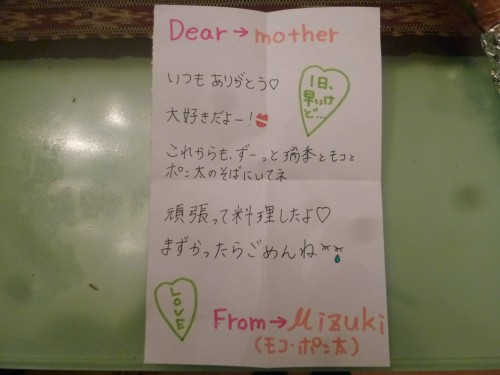 Dear→mother
いつもありがとう♡
1日、
早いけ
ど…
大好きだよー!
これからも、ずーっと瑞季とモコと
ポン太のそばにいてネ
頑張って料理したよ♡
まずかったらごめんね
LOVE
From→Mizuki
(モコ・ポン太)